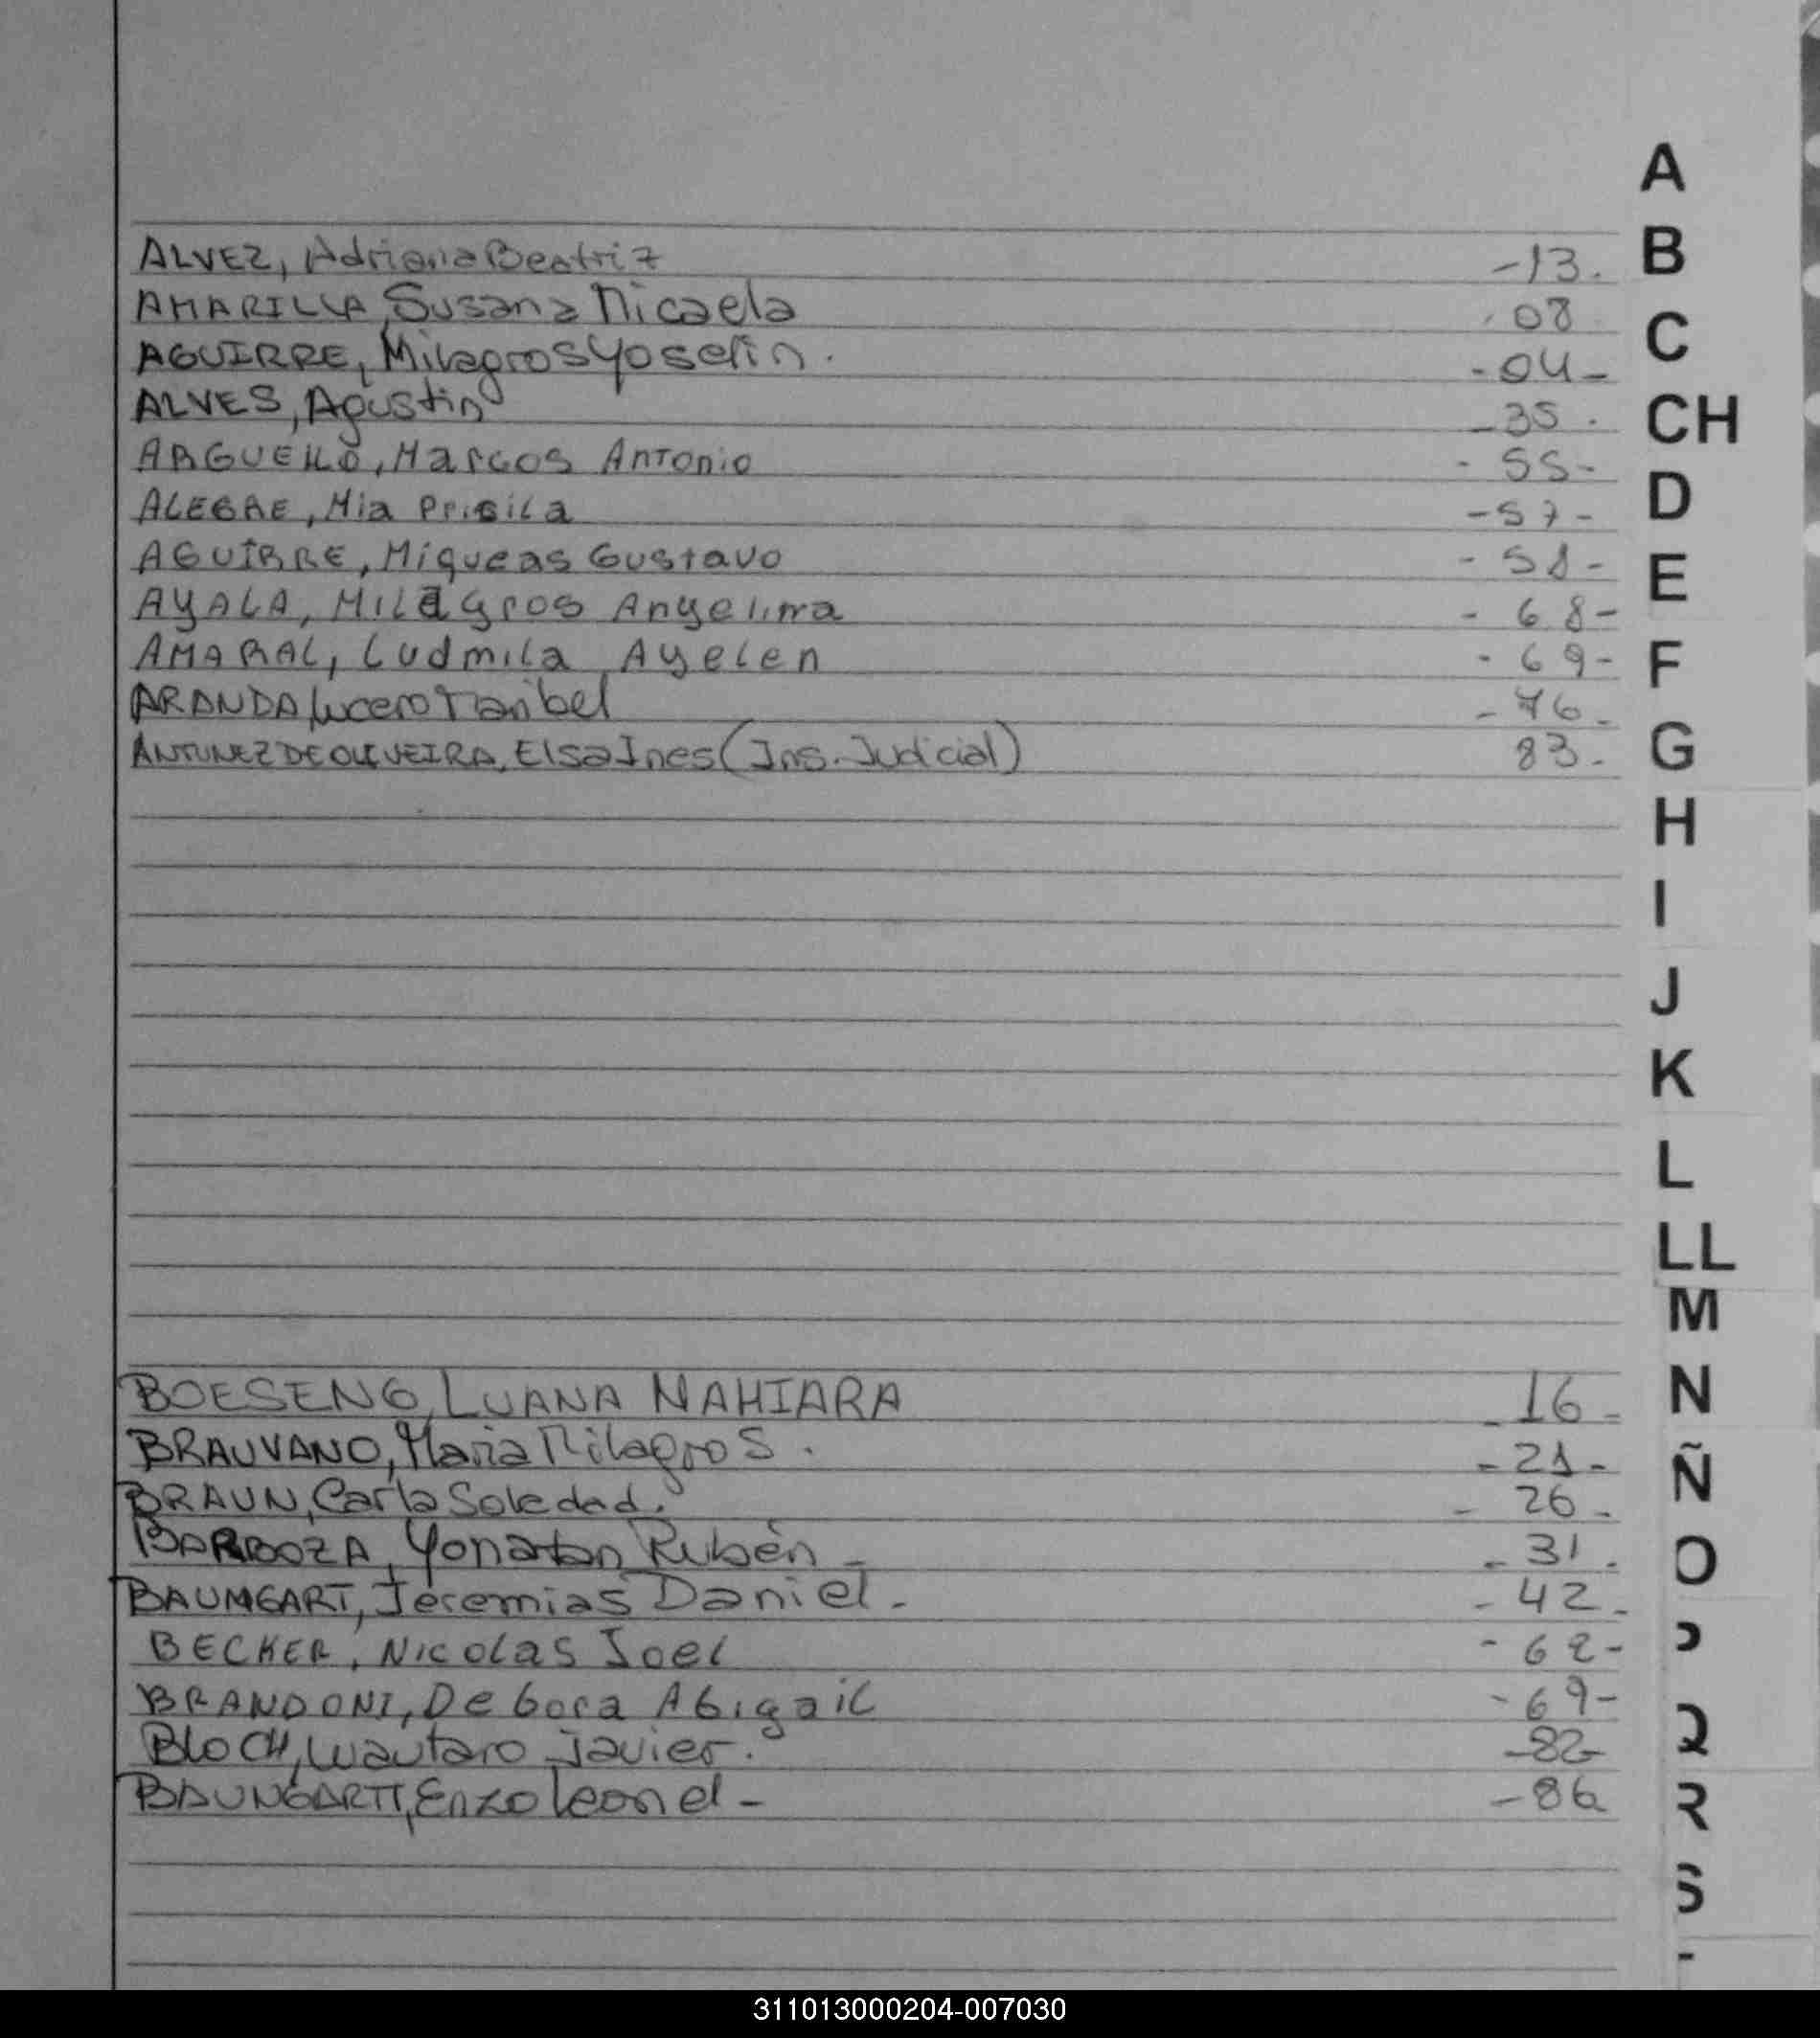 A
ALVEZ, Adriana Beatriz -13.
B
AMARILLA, Susana Micaela 08
C
AGUIRRE, Milagros Yoselin. -04-
ALVES, Agustin -35.
CH
ARGUELLO, Marcos Antonio -55-
D
ALEGRE, Mia Prisila -57-
AGUIRRE, Miqueas Gustavo -58-
E
AYALA, Milagros Angelina -68-
AMARAL, Ludmila Ayelen -69-
F
ARANDA, Lucero Maribel -76-
ANTUNEZ DE OLIVEIRA, Elsa Ines (Ins. Judicial) 83-
G
H
I
J
K
L
LL
M
BOESENG, LUANA NAHIARA -16-
N
BRAUVANO, Maria Milagros. -21-
Ñ
BRAUN, Carla Soledad. -26-
BARBOZA, Yonatan Rubén - -31.
O
BAUMGART, Jeremias Daniel- -42-
BECKER, Nicolas Joel -62-
P
BRANDONI, Debora Abigail -69-
Q
BLOCH, Lautaro Javier. -82-
BAUNGARTT, Enzo Leonel- -86
R
S
311013000204-007030